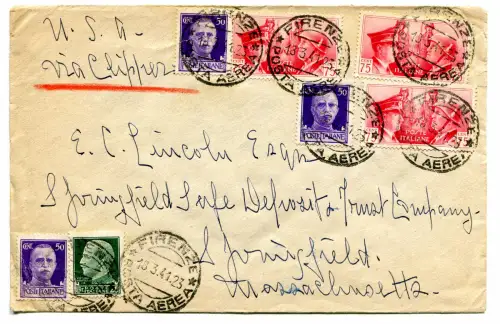 U. S. A.
via Clipper
CENT. 50
POSTE ITALIANE
75
POSTE ITALIANE
75
CENT. 50
POSTE ITALIANE
ITALIANE
FIRENZE
POSTA AEREA
13.3.41
FIRENZE
POSTA AEREA
E. C. Lincoln Esq.
Springfield Safe Deposit & Trust Company
Springfield
Massachusetts
50
POSTE ITALIANE
FIRENZE
13.3.41.23
POSTA AEREA